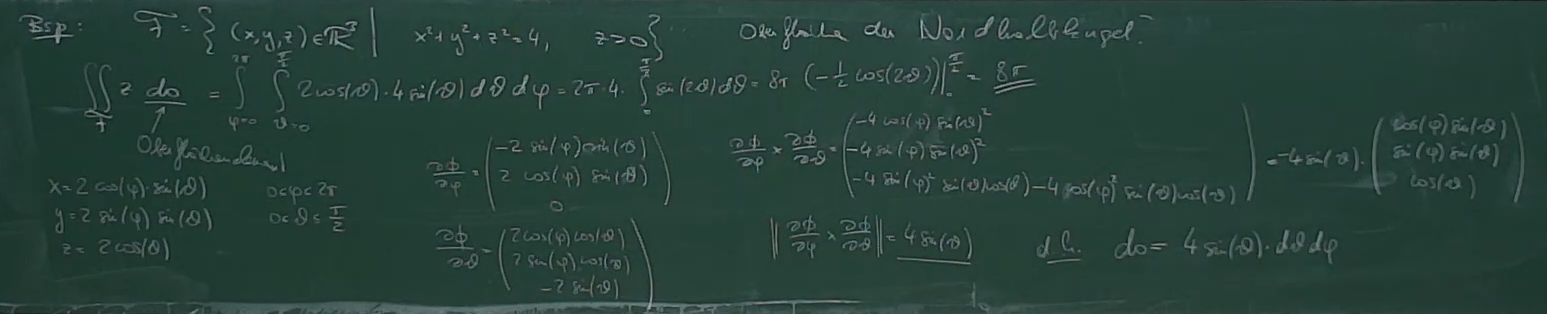 Bsp: F = { (x,y,z) ∈ ℝ³ | x²+y²+z²=4, z>0 } "Oberfläche der Nordhalbkugel."
∬_F z do = ∫_{φ=0}^{2π} ∫_{ϑ=0}^{π/2} 2cos(ϑ)·4 sin(ϑ) dϑ dφ = 2π·4· ∫_0^{π/2} sin(2ϑ) dϑ = 8π (-1/2 cos(2ϑ))|_0^{π/2} = 8π
Oberflächenelement
x = 2 cos(φ)·sin(ϑ) 0<φ<2π
y = 2 sin(φ) sin(ϑ) 0<ϑ≤π/2
z = 2cos(ϑ)
∂ϕ/∂φ = ( -2 sin(φ) sin(ϑ)
2 cos(φ) sin(ϑ)
0 )
∂ϕ/∂ϑ = ( 2cos(φ) cos(ϑ)
2 sin(φ) cos(ϑ)
-2 sin(ϑ) )
∂ϕ/∂φ × ∂ϕ/∂ϑ = ( -4 cos(φ) sin(ϑ)²
-4 sin(φ) sin(ϑ)²
-4 sin(φ)² sin(ϑ) cos(ϑ) - 4 cos(φ)² sin(ϑ) cos(ϑ) )
= -4 sin(ϑ) · ( cos(φ) sin(ϑ)
sin(φ) sin(ϑ)
cos(ϑ) )
‖ ∂ϕ/∂φ × ∂ϕ/∂ϑ ‖ = 4 sin(ϑ) d.h. do = 4 sin(ϑ)· dϑ dφ